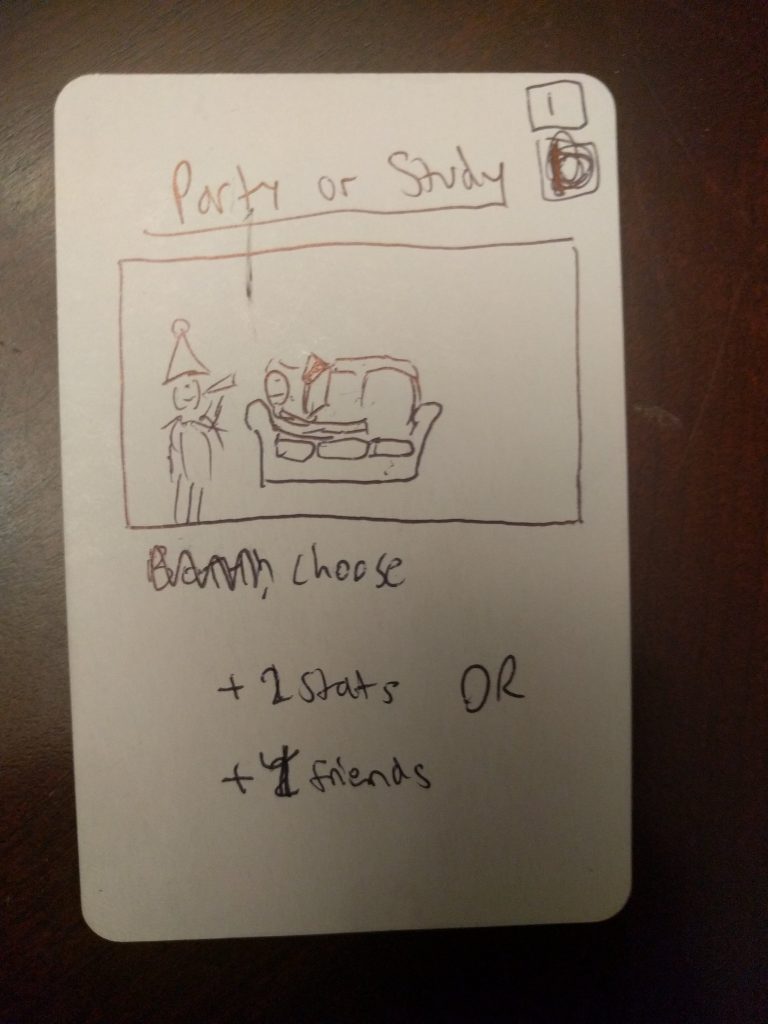 1
Party or Study
choose
+ stats OR
+ friends